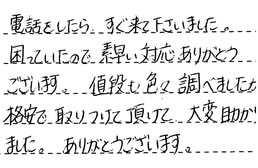 電話をしたら、すぐ来て下さいました。
困っていたので素早い対応ありがとう
ございます。値段も色々調べましたが
格安で取りつけて頂けて、大変助かり
ました。ありがとうございます。